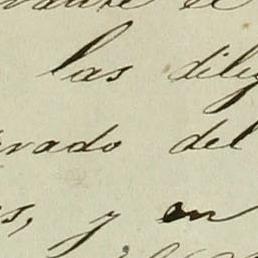 las dilig
rvado del
s, y en